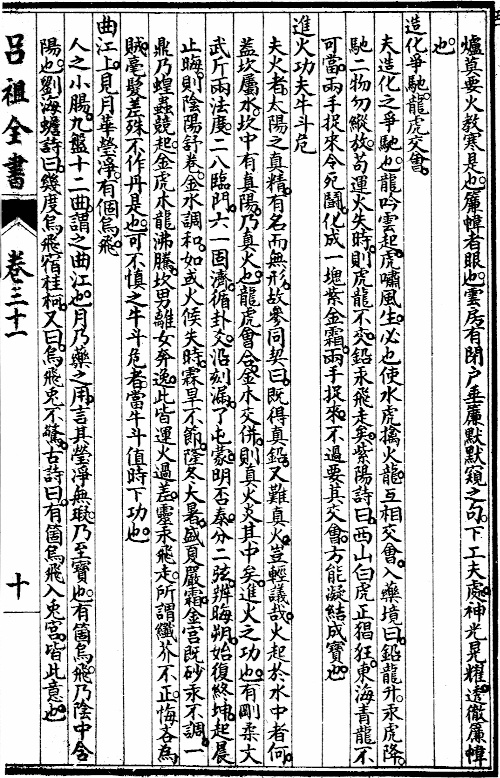 爐莫要火教寒是也簾幃者眼也雲房有閉户垂簾默默窺之句下工夫處神光晃耀遠徹簾幃
也
造化爭馳龍虎交會
夫造化之爭馳也龍吟雲起虎嘯風生必也使水虎擒火龍互相交會入藥境曰鉛龍升汞虎降
馳二物勿縱放苟運火失時則虎龍不交鉛汞飛走矣紫陽詩曰西山白虎正猖狂東海青龍不
可當兩手捉來令死鬪化成一塊紫金霜兩手捉來不過要其交會方能凝結成寶也
進火功夫牛斗危
夫火者太陽之真精有名而無形故參同契曰既得真鉛又難真火豈輕議哉火起於水中者何
蓋坎屬水坎中有真陽乃真火也龍虎會合金木交併則真火炎其中矣進火之功也有剛柔文
武斤兩法度二八臨門六一固濟循卦爻沿刻漏了屯蒙明否泰分二弦辨晦朔始復終坤起晨
止晦則陰陽舒卷金水調和如或火候失時霖旱不節隆冬大暑盛夏嚴霜金宫既砂汞不調一
鼎乃蝗蟲競起金虎木龍沸騰坎男離女奔逸此皆運火過差靈汞飛走所謂纖芥不正悔吝為
賊毫髮差殊不作丹是也可不慎之牛斗危者當牛斗值時下功也
曲江上見月華瑩淨有個烏飛
人之小腸九盤十二曲謂之曲江也月乃藥之用言其瑩淨無瑕乃至寶也有箇烏飛乃陰中含
陽也劉海蟾詩曰幾度烏飛宿桂柯又曰烏飛兎不驚古詩曰有箇烏飛入兎宫皆此意也
吕祖全書
卷三十一
十